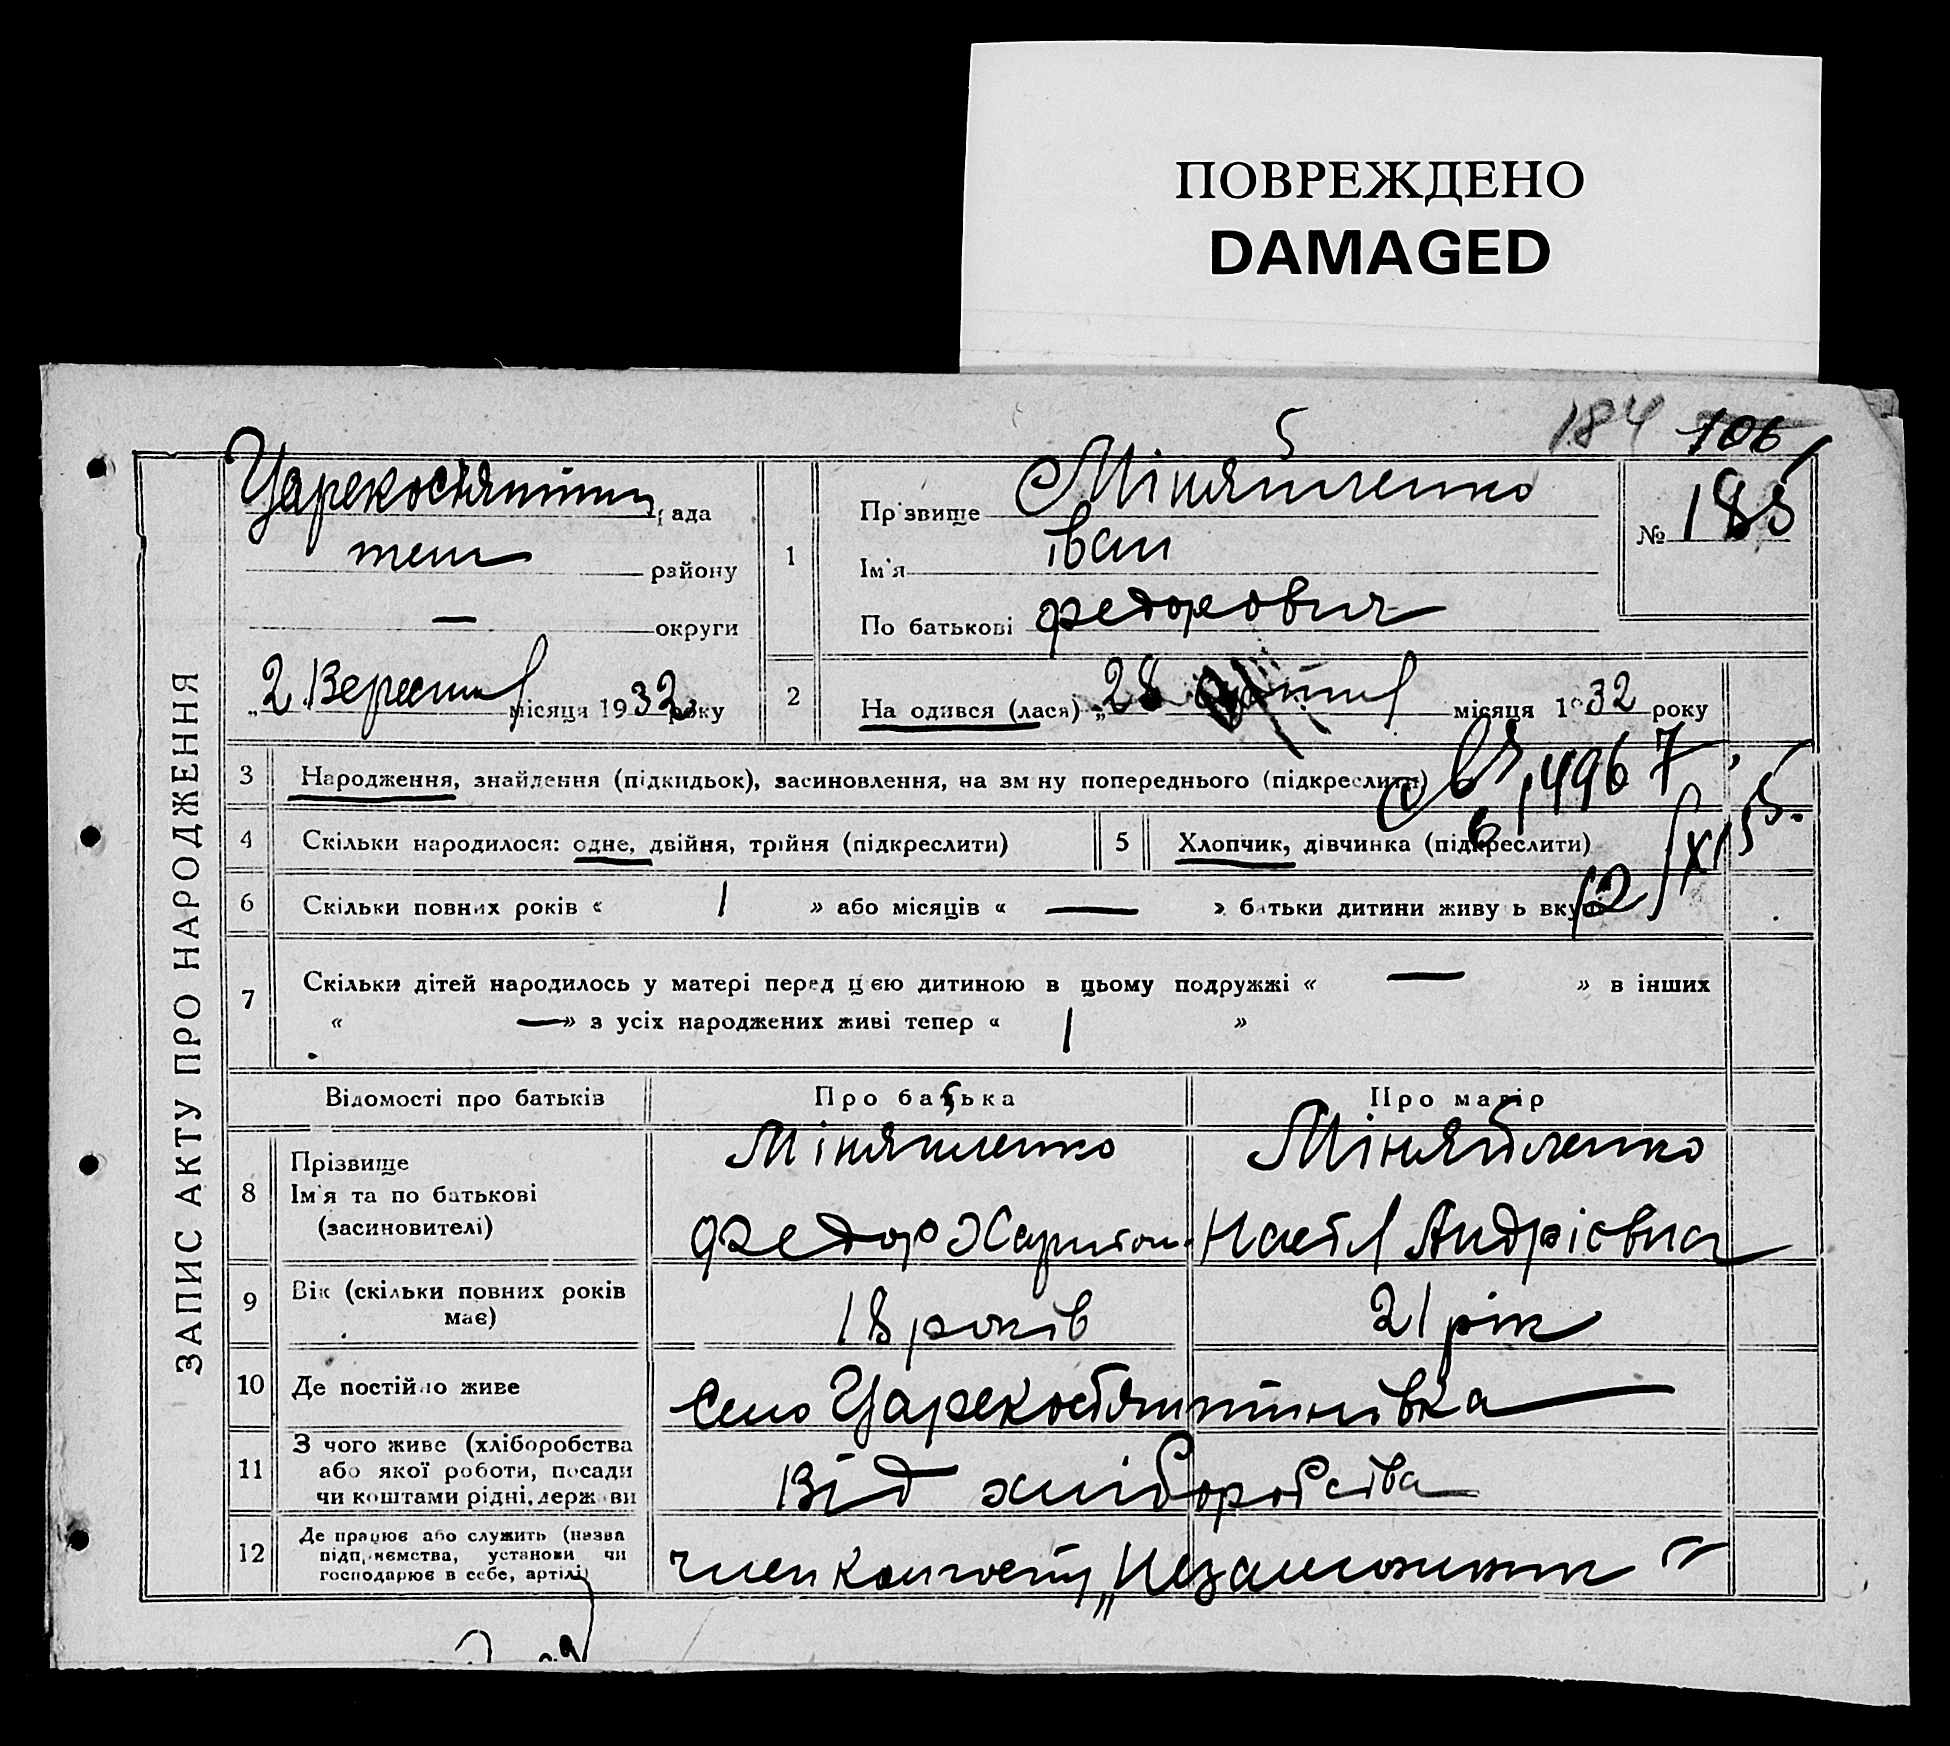 ПОВРЕЖДЕНО
DAMAGED
184 106
ЗАПИС АКТУ ПРО НАРОДЖЕННЯ
рада
району
— округи
„2 Вересня місяця 1932 року
1
Прізвище Міняйленко
Ім'я Іван
По батькові Федорович
№ 185
2
На одився (лася) „28 місяця 1932 року
3 Народження, знайдення (підкидьок), засиновлення, на зм ну попереднього (підкреслити)
4 Скільки народилося: одне, двійня, трійня (підкреслити)
5 Хлопчик, дівчинка (підкреслити)
6 Скільки повних років « 1 » або місяців « — » батьки дитини живу ь вкупі
7 Скільки дітей народилось у матері перед цією дитиною в цьому подружжі « — » в інших
« — » з усіх народжених живі тепер « 1 »
Відомості про батьків Про батька Про матір
8 Прізвище
Ім'я та по батькові
(засиновителі)
Міняйленко
Федор Харитон.
Міняйленко
Настя Андрієвна
9 Вік (скільки повних років
має)
18 років
21 рік
10 Де постійно живе
село Царекостянтинівка
11 З чого живе (хліборобства
або якої роботи, посади
чи коштами рідні, держави
Від хліборобства
12 Де працює або служить (назва
підприємства, установи чи
господарює в себе, артілі)
член колгоспу „Незаможник"